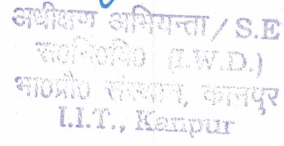 अधीक्षण अभियन्ता / S.E
सं०नि०वि० (I.W.D.)
भा०प्रौ० संस्थान, कानपुर
I.I.T., Kanpur